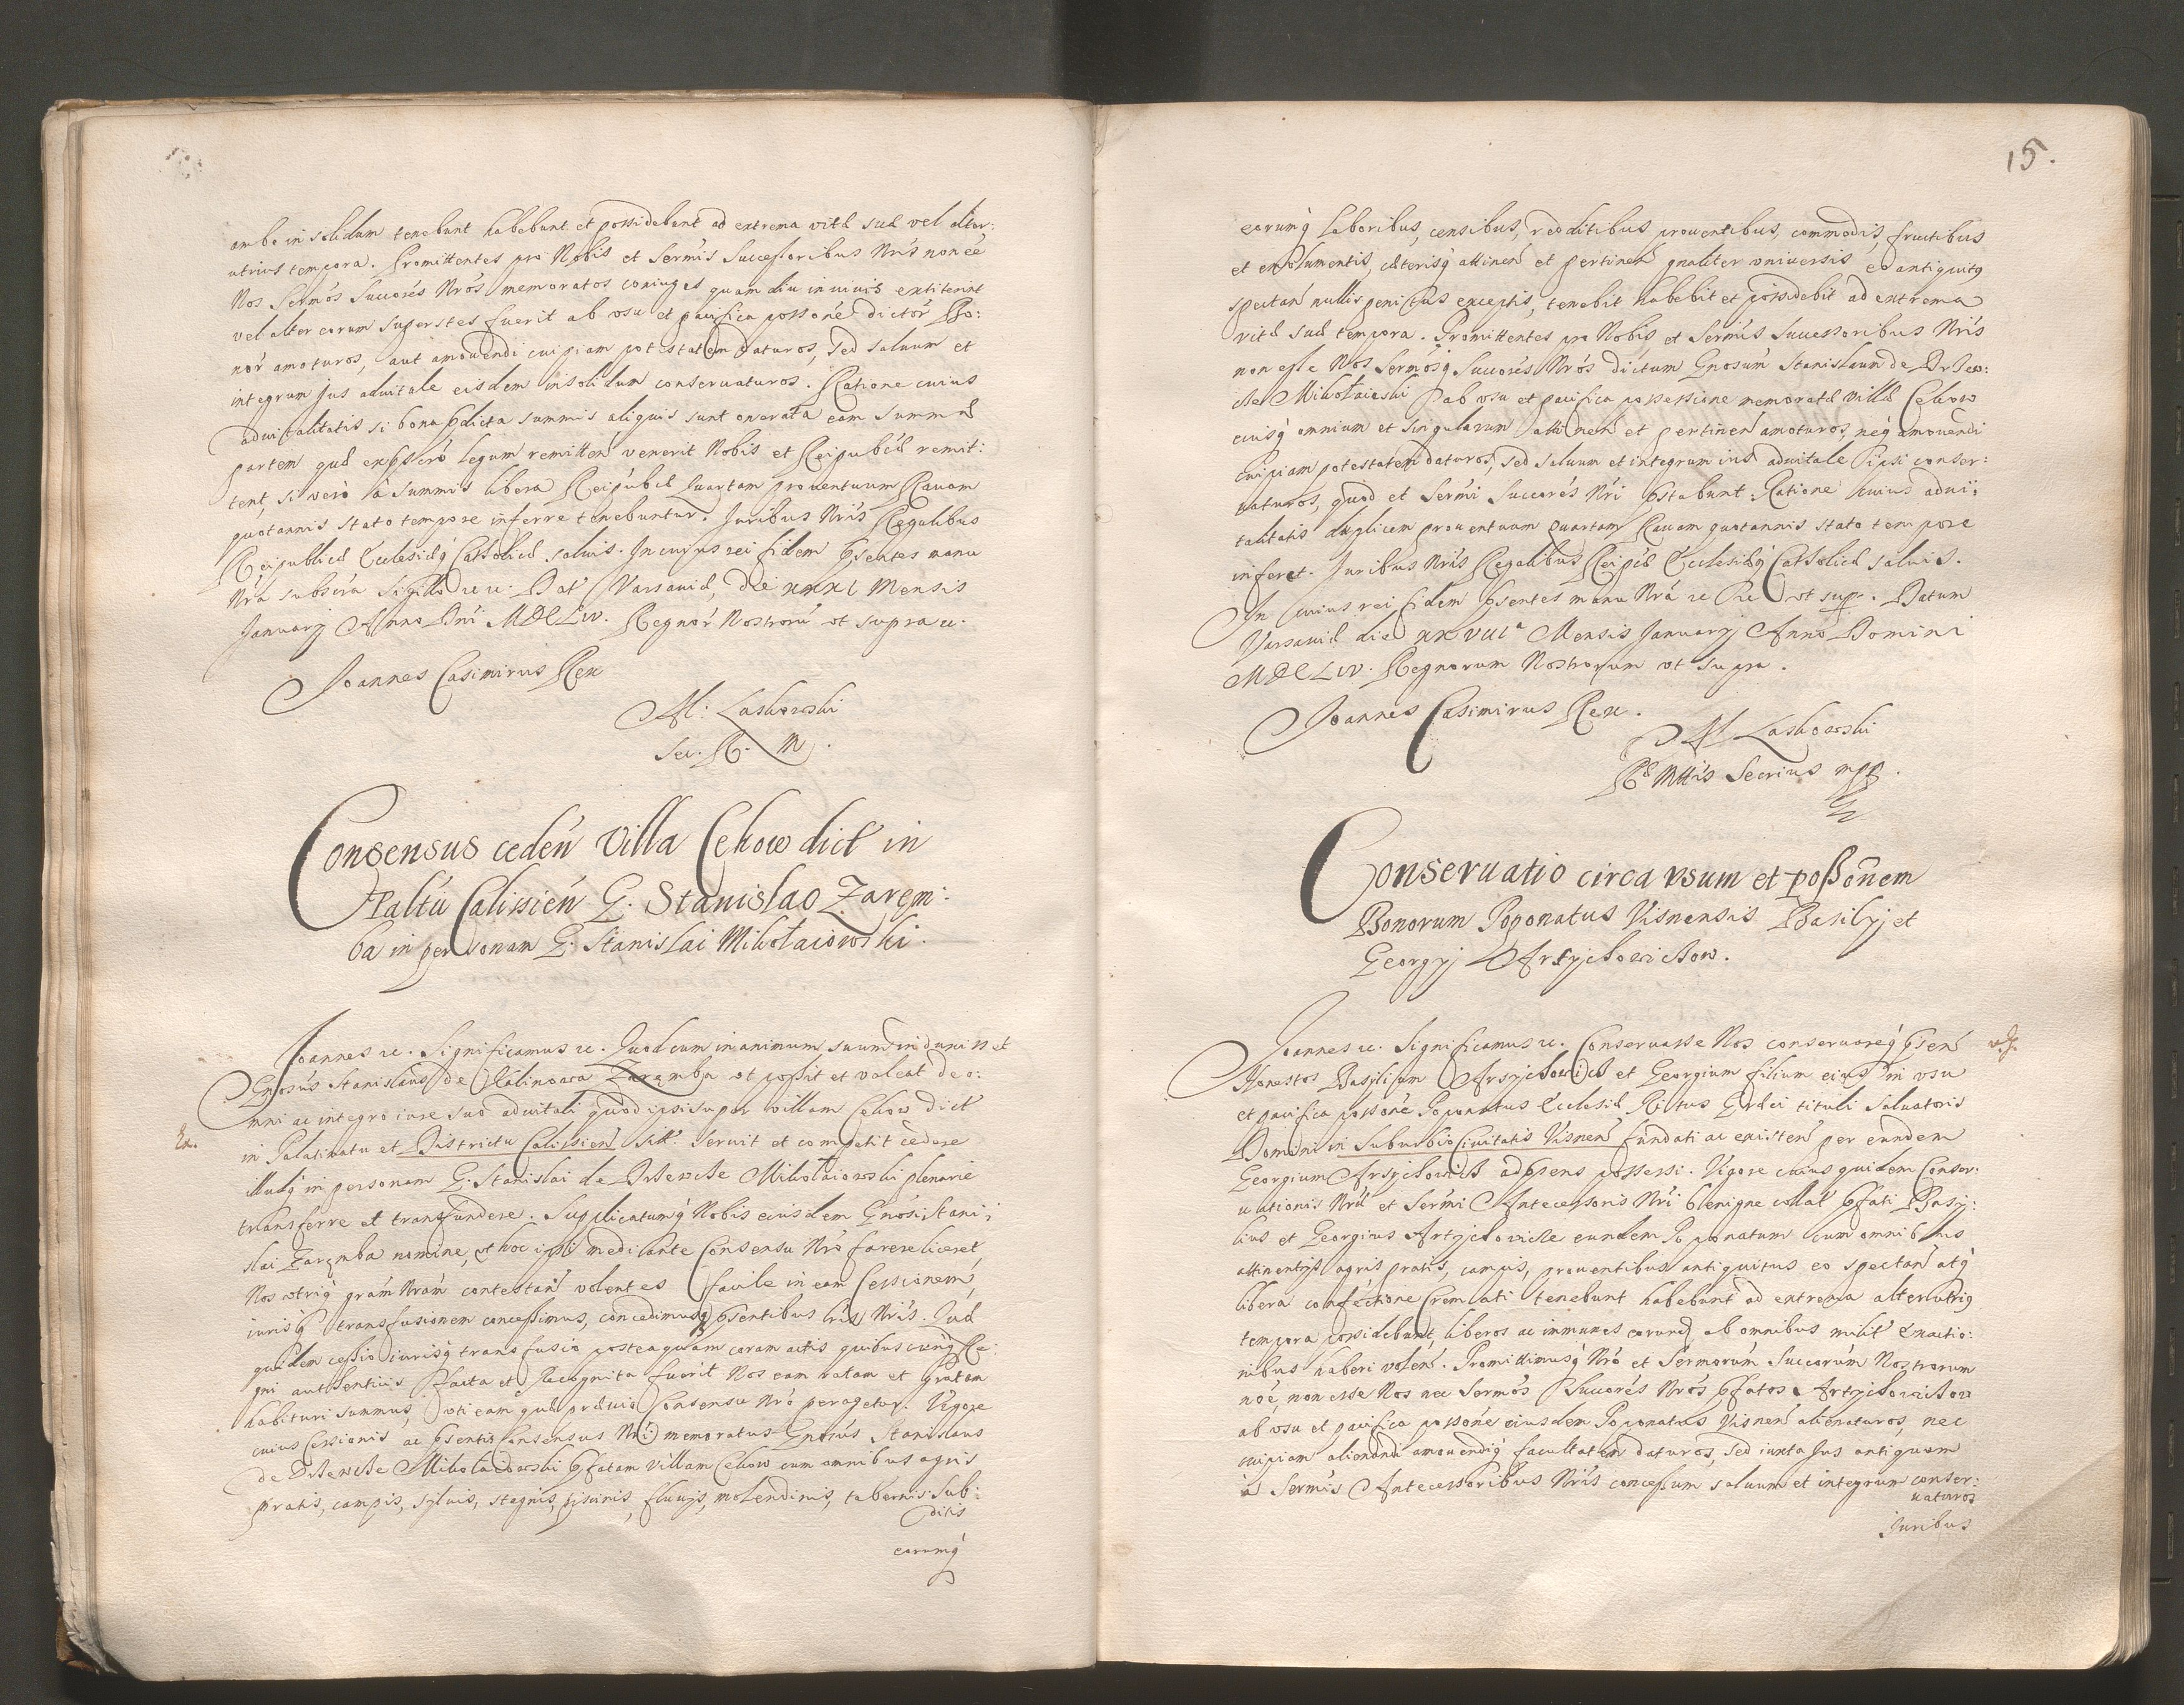 ambo in solidum tenebunt habebunt et possidebunt ad extrema vitæ suæ vel alter:
utrius tempora. Promittentes pro Nobis et Sermis Successoribus Nris non eē
Nos Sermos Succores Nros memoratos coniuges quam diu in vivis extiterint
vel alter eorum superstes fuerit ab usu et pacifica possone dictor Bo:
nor amoturos, aut amovendi cuipiam potestatem daturos, sed saluum et
integrum Jus aduitale eisdem in solidum conseruaturos. Ratione cuius
aduitalitatis si bona pdicta summis aliquis sunt onerata eam summæ
partem quæ ex pscro legum remitten venerit Nobis et Reipubcæ remit:
tent, si vero à summis libera Reipubcæ Quartam prouentuum Rauam
quotannis stato tempore inferre tenebuntur. Juribus Nris Regalibus
Reipublicæ Ecclesiæq Catholicæ saluis. In cuius rei fidem psentes manu
Nra subscra Sigillo re u. Dat Varsauiæ, die xxxi Mensis
January Anno Dni MDCLiv. Regnor Nostroru ut supra u.
Joannes Casimirus Rex
M: Laskowski
Sec. R. M.
Consensus ceden Villa Cekow dict in
Paltu Calissien G. Stanislao Zarem:
ba in personam G. Stanislai Mikołaiowski.
Joannes re. Significamus re. Quod cum in animum suum induxisset
Gnosus Stanislaus de Kalinowa Zaremba ut possit et valeat de o:
mni ac integro iure suo aduitali quod ipsi super villam Cekow dict
Ex.
in Palatinatu et Districtu Calissien sitt. seruit et competit cedere
illudq in personam G. Stanislai de Drzewcze Mikołaiowski plenarie
transferre et transfundere. Supplicatumq Nobis eiusdem Gnosi Stani:
slai Zaremba nomine, ut hoc ipsi mediante Consensu Nro facere liceret,
Nos utriq gram Nram contestari volentes facile in eam Cessionem,
iurisq transfusionem concessimus, concedimusq psentibus lris Nris. Quæ
quidem cessio iurisq transfusio posteaquam coram actis quibuscunq Re:
gni authenticis facta et Recognita fuerit Nos eam ratam et gratam
habituri summus, uti eam quæ præuio Consensu Nro peragetur. Vigore
cuius Cessionis ac psentis Consensus Nri memoratus Gnosus Stanislaus
de Drzewcze Mikołaiowski pfatam Villam Cekow cum omnibus agris
pratis, campis, syluis, stagnis, piscinis, fluuijs, molendinis, tabernis sub:
ditis
eorumq
15.
eorumq laboribus, censibus, redditibus prouentibus, commodis, fructibus
et emolumentis, cæterisq attinen et pertinen gnaliter vniuersis eo antiquitq
spectan nullis penitus exceptis, tenebit habebit et possidebit ad extrema
vitæ suæ tempora. Promittentes pro Nobis et Sermis Successoribus Nris
non esse Nos Sermosq Succores Nros dictum Gnosum Stanislaum de Drzew:
cze Mikołaiewski ab usu et pacifica possessione memoratæ villæ Cekow
cuiusq omnium et singularum attinen et pertinen amoturos, neq amouendi
cuipiam potestatem daturos, sed saluum et integrum ius aduitale ipsi conser:
uaturos, quod et Sermi Succores Nri pstabunt. Ratione cuius adui:
talitatis duplicem prouentuum quartam Rauam quotannis stato tempore
inferet. Juribus Nris Regalibus Reipcæ Ecclesiæq Catholicæ saluis.
In cuius rei fidem psentes manu Nra re Re ut supr. Datum
Varsauiæ die xxviiia Mensis January Anno Domini
MDCLiv. Regnorum Nostrorum ut supra.
Joannes Casimirus Rex.
M Laskowski
Ræ Mttis Secrius mpp.
Conseruatio circa vsum et poßonem
Bonorum Poponatus Visnensis Basilyj et
Georgyj Artychowichow.
Joannes re. Significamus re. Conseruasse Nos conseruareq psen
Honestos Basilium Artychowicz et Georgium filium eius in vsu
et pacifica possone Poponatus Ecclesiæ Ritus Græci tituli Saluatoris
Domini in Suburbio Ciuitatis Visnen fundati ac existen per eundem
Georgium Artychowicz ad psens possessi. Vigore cuius quidem Conser:
uationis Nræ et Sermi Antecessoris Nri benigne collat pfati Basy:
lius et Georgius Artychowicze eundem Poponatum cum omnibus
attinentijs agris pratis, campis, prouentibus antiquitus eo spectan atq
libera confectione Cremati tenebunt habebunt ad extrema alterutriq
tempora possidebunt, liberos ac immunes eorund ab omnibus milit Exactio:
nibus haberi volen. Promittimusq Nro et Sermorum Succorum Nostrorum
noe, non esse Nos nec Sermos Succores Nros pfatos Artychowichow
ab vsu et pacifica possone eiusdem Poponatus Visnen alienaturos, nec
cuipiam alienandi amouendiq facultatem daturos, sed iuxta Jus antiquum
à Sermis Antecessoribus Nris concessum saluum et integrum conser:
uaturos
Juribus